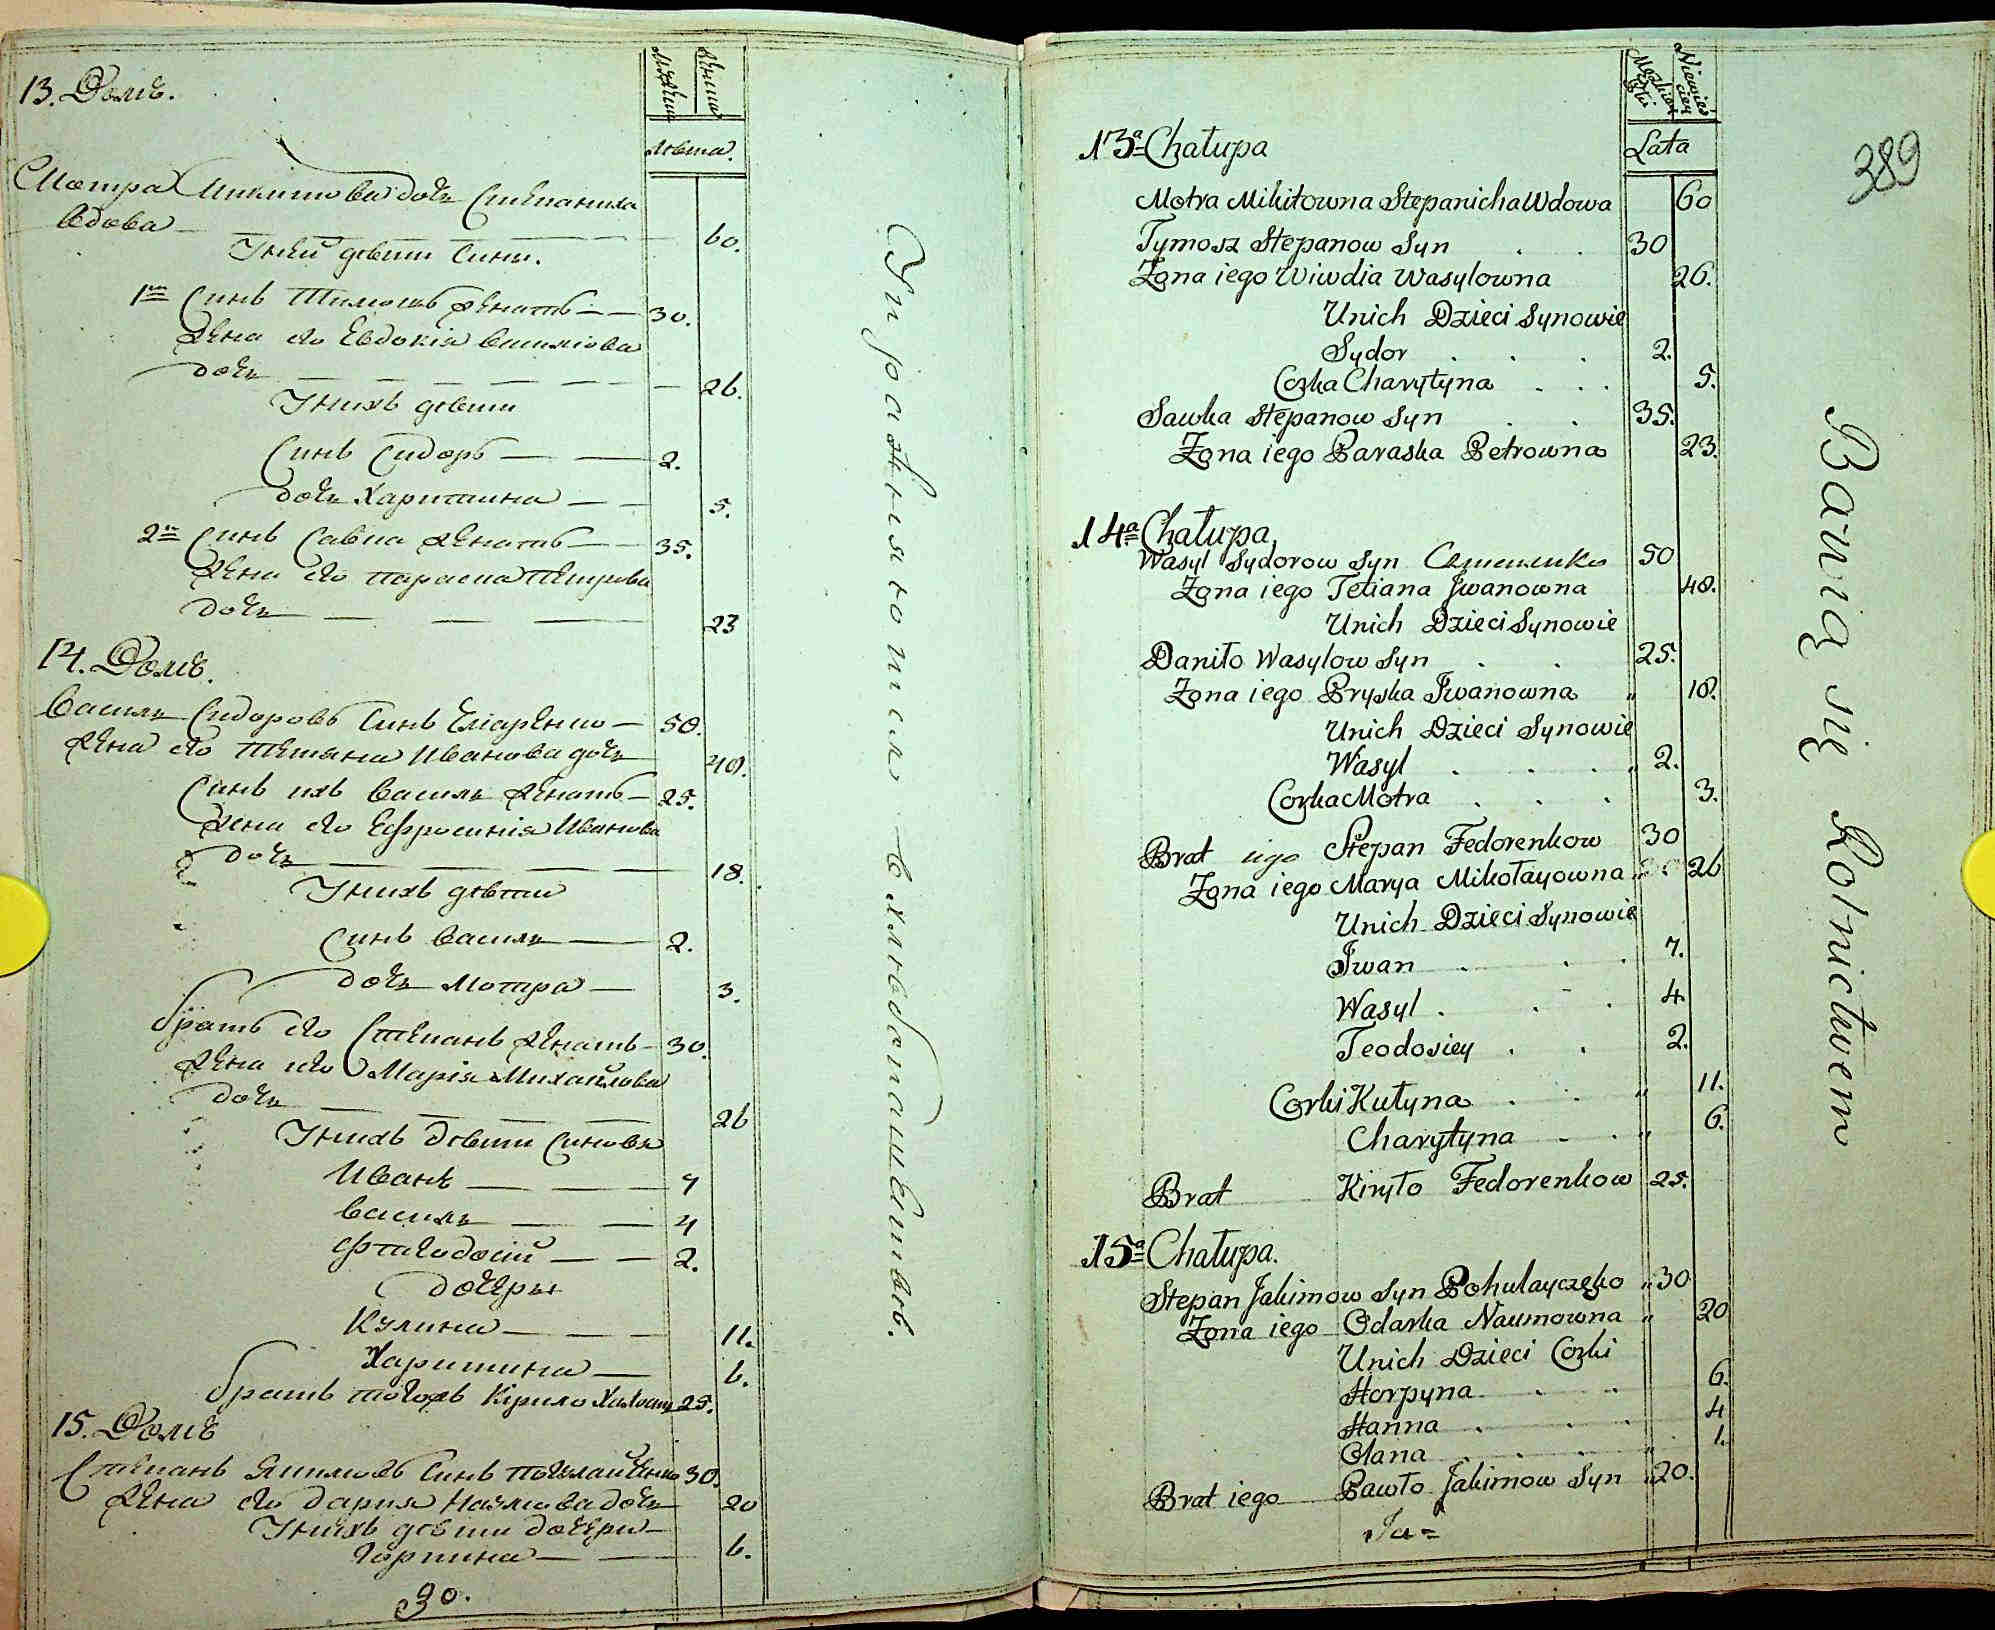 Мужеска
Женска
Лѣта.
13. Домъ.
Мотра Микитова дочь Степаниха
вдова 60.
У ней дѣти Сини.
1й Синъ Тимошъ женатъ 30.
Жена его Евдокія Василіова
дочь 26.
У нихъ дѣти
Синъ Сидоръ 2.
дочь Харитина 5.
2й Синъ Савка женатъ 35.
Жена его Параска Петрова
дочь 23
14. Домъ.
Василь Сидоровъ Синъ 50.
Жена его Тетяна Иванова дочь 48.
Синъ ихъ Василь женатъ 25.
Жена его Ефросинія Иванова
дочь 18.
У нихъ дѣти
Синъ Василь 2.
дочь Мотра 3.
братъ его Степанъ женатъ 30.
Жена его Марія Михайлова
дочь 26
У нихъ дѣти Синовя
Иванъ 7
Василь 4
Фтеодосій 2.
дочеры
Кулина 11.
Харитина 6.
братъ тогожъ Кирило Холостъ 25.
15. Домъ
Степанъ Якимовъ Синъ Погулайченко 30.
Жена его Дарія Наумова дочь 20
У нихъ дѣти дочери
Горпина 6.
30.
Упражняются в хлебопашествѣ.
389
Męzkiey
Płci
Niewieściey
Lata
13ª Chałupa
Motra Mikitowna Stepanicha Wdowa 60
Tymosz Stepanow Syn . . 30
Zona iego Wiwdia Wasylowna 26.
Unich Dzieci Synowie
Sydor . . . 2.
Corka Charytyna . . . 5.
Sawka Stepanow Syn . . 35.
Zona iego Paraska Petrowna 23.
14ª Chałupa
Wasyl Sydorow Syn 50
Zona iego Tetiana Jwanowna 48.
Unich Dzieci Synowie
Daniło Wasylow Syn . . 25.
Zona iego Pryska Jwanowna " 18.
Unich Dzieci Synowie
Wasyl . . . " 2.
Corka Motra . . . 3.
Brat iego Stepan Fedorenkow 30
Zona iego Marya Mikołayowna 26
Unich Dzieci Synowie
Jwan . . . 7.
Wasyl . . . 4
Teodosiey . . 2.
Corki Kułyna . . " 11.
Charytyna . . " 6.
Brat Kiryło Fedorenkow 25.
15ª Chałupa.
Stepan Jakimow Syn Pohulayczęko " 30
Zona iego Odarka Naumowna " 20
Unich Dzieci Corki
Horpyna . . 6.
Hanna . . . 4
Olana . . . " 1.
Brat iego Pawło Jakimow Syn " 20.
Ja=
Bawią się Rolnictwem